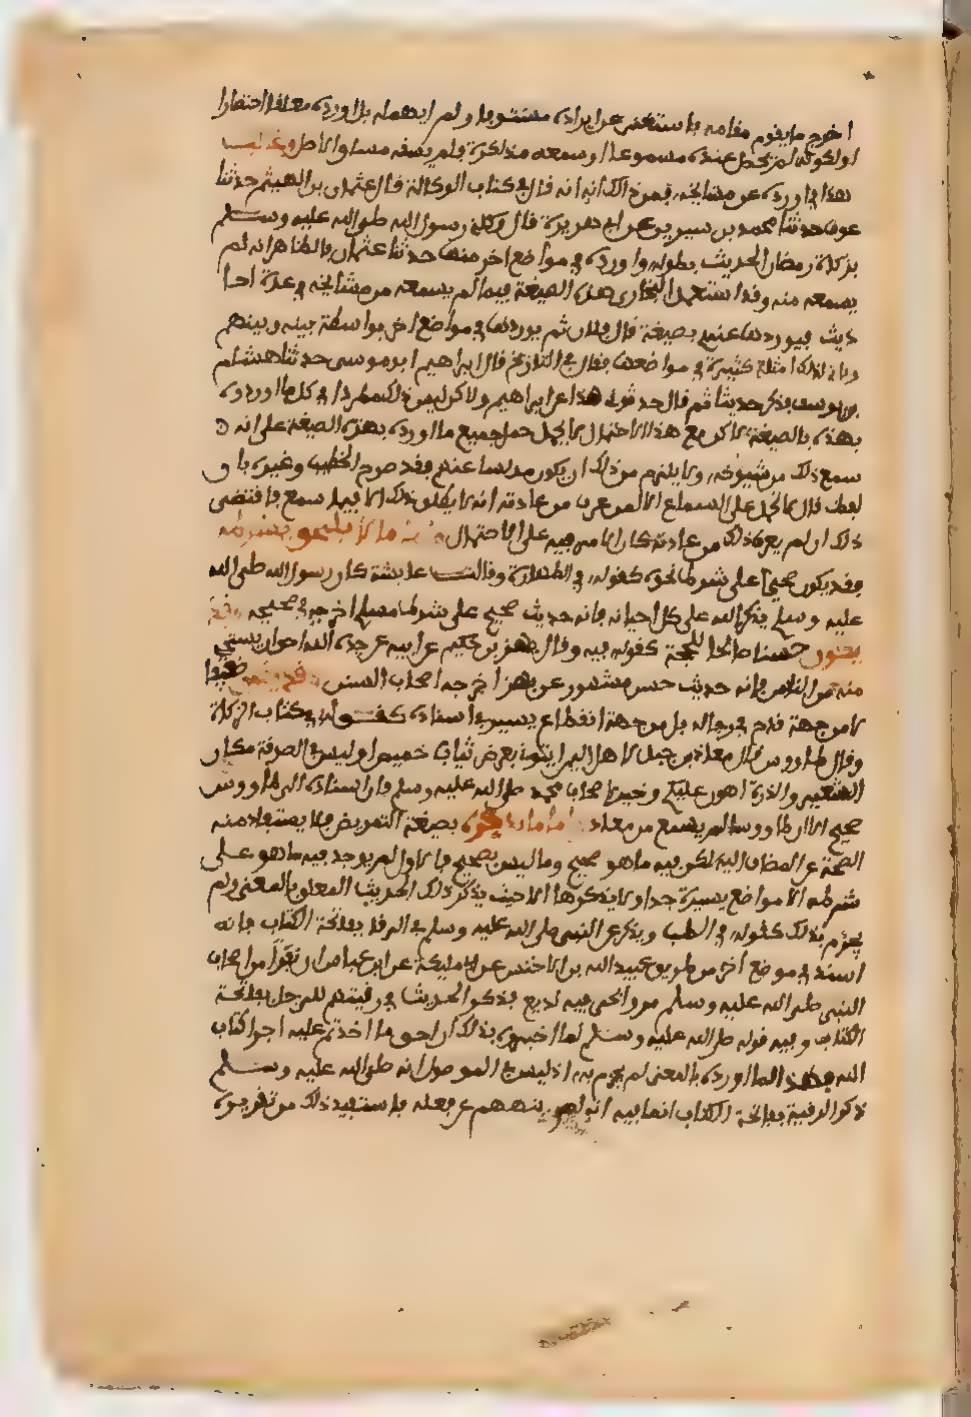 اخرج ما يقوم مقامه فاستغنى عن ايراده مستوفيا ولم يهمله بل اورده معلقا اختصارا
او لكونه لم يحصل عنده مسموعا او سمعه مذاكرة فلم يسقه مساق الاصل وغالب
هذا فيما اورده عن مشايخه فمن ذلك انه قال في كتاب الوكالة قال عثمان بن الهيثم حدثنا
عوف حدثنا محمد بن سيرين عن ابي هريرة قال وكلني رسول الله صلى الله عليه وسلم
بزكاة رمضان الحديث بطوله واورده في مواضع اخر منها حدثنا عثمان فالظاهر انه لم
يسمعه منه وقد استعمل البخاري هذه الصيغة فيما لم يسمعه من مشايخه في عدة احا
ديث فيوردها عنهم بصيغة قال فلان ثم يوردها في مواضع اخر بواسطة بينه وبينهم
لذلك امثلة كثيرة في مواضعها فقال في التاريخ قال ابراهيم ابن موسى حدثنا هشام
بن يوسف فذكر حديثا ثم قال حدثوني هذا عن ابراهيم ولاكن ليس ذلك مطردا في كل ما اورده
بهذه بالصيغة لاكن مع هذا الاحتمال لا يجمل حمل جميع ما اورده بهذه الصيغة على انه
سمع ذلك من شيوخه ولا يلزم من ذلك ان يكون مدلسا عنهم فقد صرح الخطيب وغيره بان
لفظ قال لا تحمل على السماع الا ممن عرف من عادته انه لا يطلق ذلك الا فيما سمع فاقتضى
ذلك ان لم يعرف ذلك من عادته كان الامر فيه على الاحتمال ما لا يلتحق بشرطه
فقد يكون صحيحا على شرط غيره كقوله في الطهارة وقالت عايشة كان رسول الله صلى الله
عليه وسلم يذكر الله على كل احيانه فانه حديث صحيح على شرط مسلم اخرجه في صحيحه وقد
يكون حسنا صالحا للحجة كقوله فيه وقال بهز بن حكيم عن ابيه عن جده الله احق ان يستحي
منه من الناس فانه حديث حسن مشهور عن بهز اخرجه اصحاب السنن وقد يكون ضعيفا
لا من جهة قدح في رجاله بل من جهة انقطاع يسير في اسناده كقوله في كتاب الزكاة
وقال طاووس قال معاذ بن جبل لاهل اليمن ايتوني بعرض ثياب خميص او لبيس في الصدقة مكان
الشعير والذرة اهون عليكم وخير لاصحاب محمد صلى الله عليه وسلم فان اسناده الى طاووس
صحيح الا ان طاووسا لم يسمع من معاذ اما ما بصيغة التمريض فلا يستفاد منه
الصحة عن المضاف اليه لكن فيه ما هو صحيح وما ليس بصحيح فالاول لم يوجد فيه ما هو على
شرطه الا مواضع يسيرة جدا ولا يذكرها الا حيث يذكر ذلك الحديث المعلق بالمعنى ولم
يجزم بذلك كقوله في الطب ويذكر عن النبي صلى الله عليه وسلم في الرقا بفاتحة الكتاب فانه
اسنده في موضع اخر من طريق عبيد الله بن الاخنس عن ابن ابي مليكة عن ابن عباس ان نفرا من اصحاب
النبي صلى الله عليه وسلم مروا بحي فيه لديغ فذكر الحديث في رقيتهم للرجل بفاتحة
الكتاب وفيه قوله صلى الله عليه وسلم لما اخبروه بذلك ان احق ما اخذتم عليه اجرا كتاب
الله فهذا لما اورده بالمعنى لم يجزم به اذ ليس في الموصول انه صلى الله عليه وسلم
ذكر الرقية بفاتحة الكتاب انما فيه انه لم ينههم عن فعله فاستفيد ذلك من تقريره